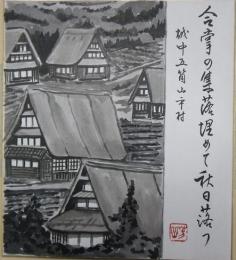 合掌の集落埋めて秋日落つ
越中五箇山平村